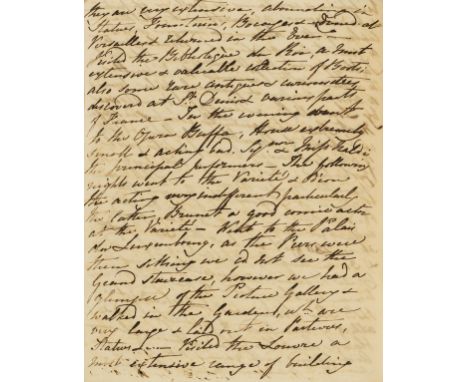 they are very extensive, abounding in
Statues, Fountains, Bocages & Dined at
Versailles & returned in the Even:—
Visited the Biblioteque du Roi a most
extensive & valuable collection of Books,
also some rare antiques & curiosities
discovered at St Denis & various parts
of France — In the evening went
to the Opera Buffa, House extremely
small & acting bad. Sigr & Miss Naldi
the principal performers — The following
nights went to the Variété &
the acting very indifferent particularly
the latter, Brunet a good comic actor
at the Variété — Went to the Palais
du Luxembourg, as the Peers were
then sitting we cd not see the
Grand Staircase, however we had a
Glimpse of the Picture Gallery &
walked in the Gardens, wh are
very large & laid out in Parterres,
Statues &c — Visited the Louvre a
most extensive range of building